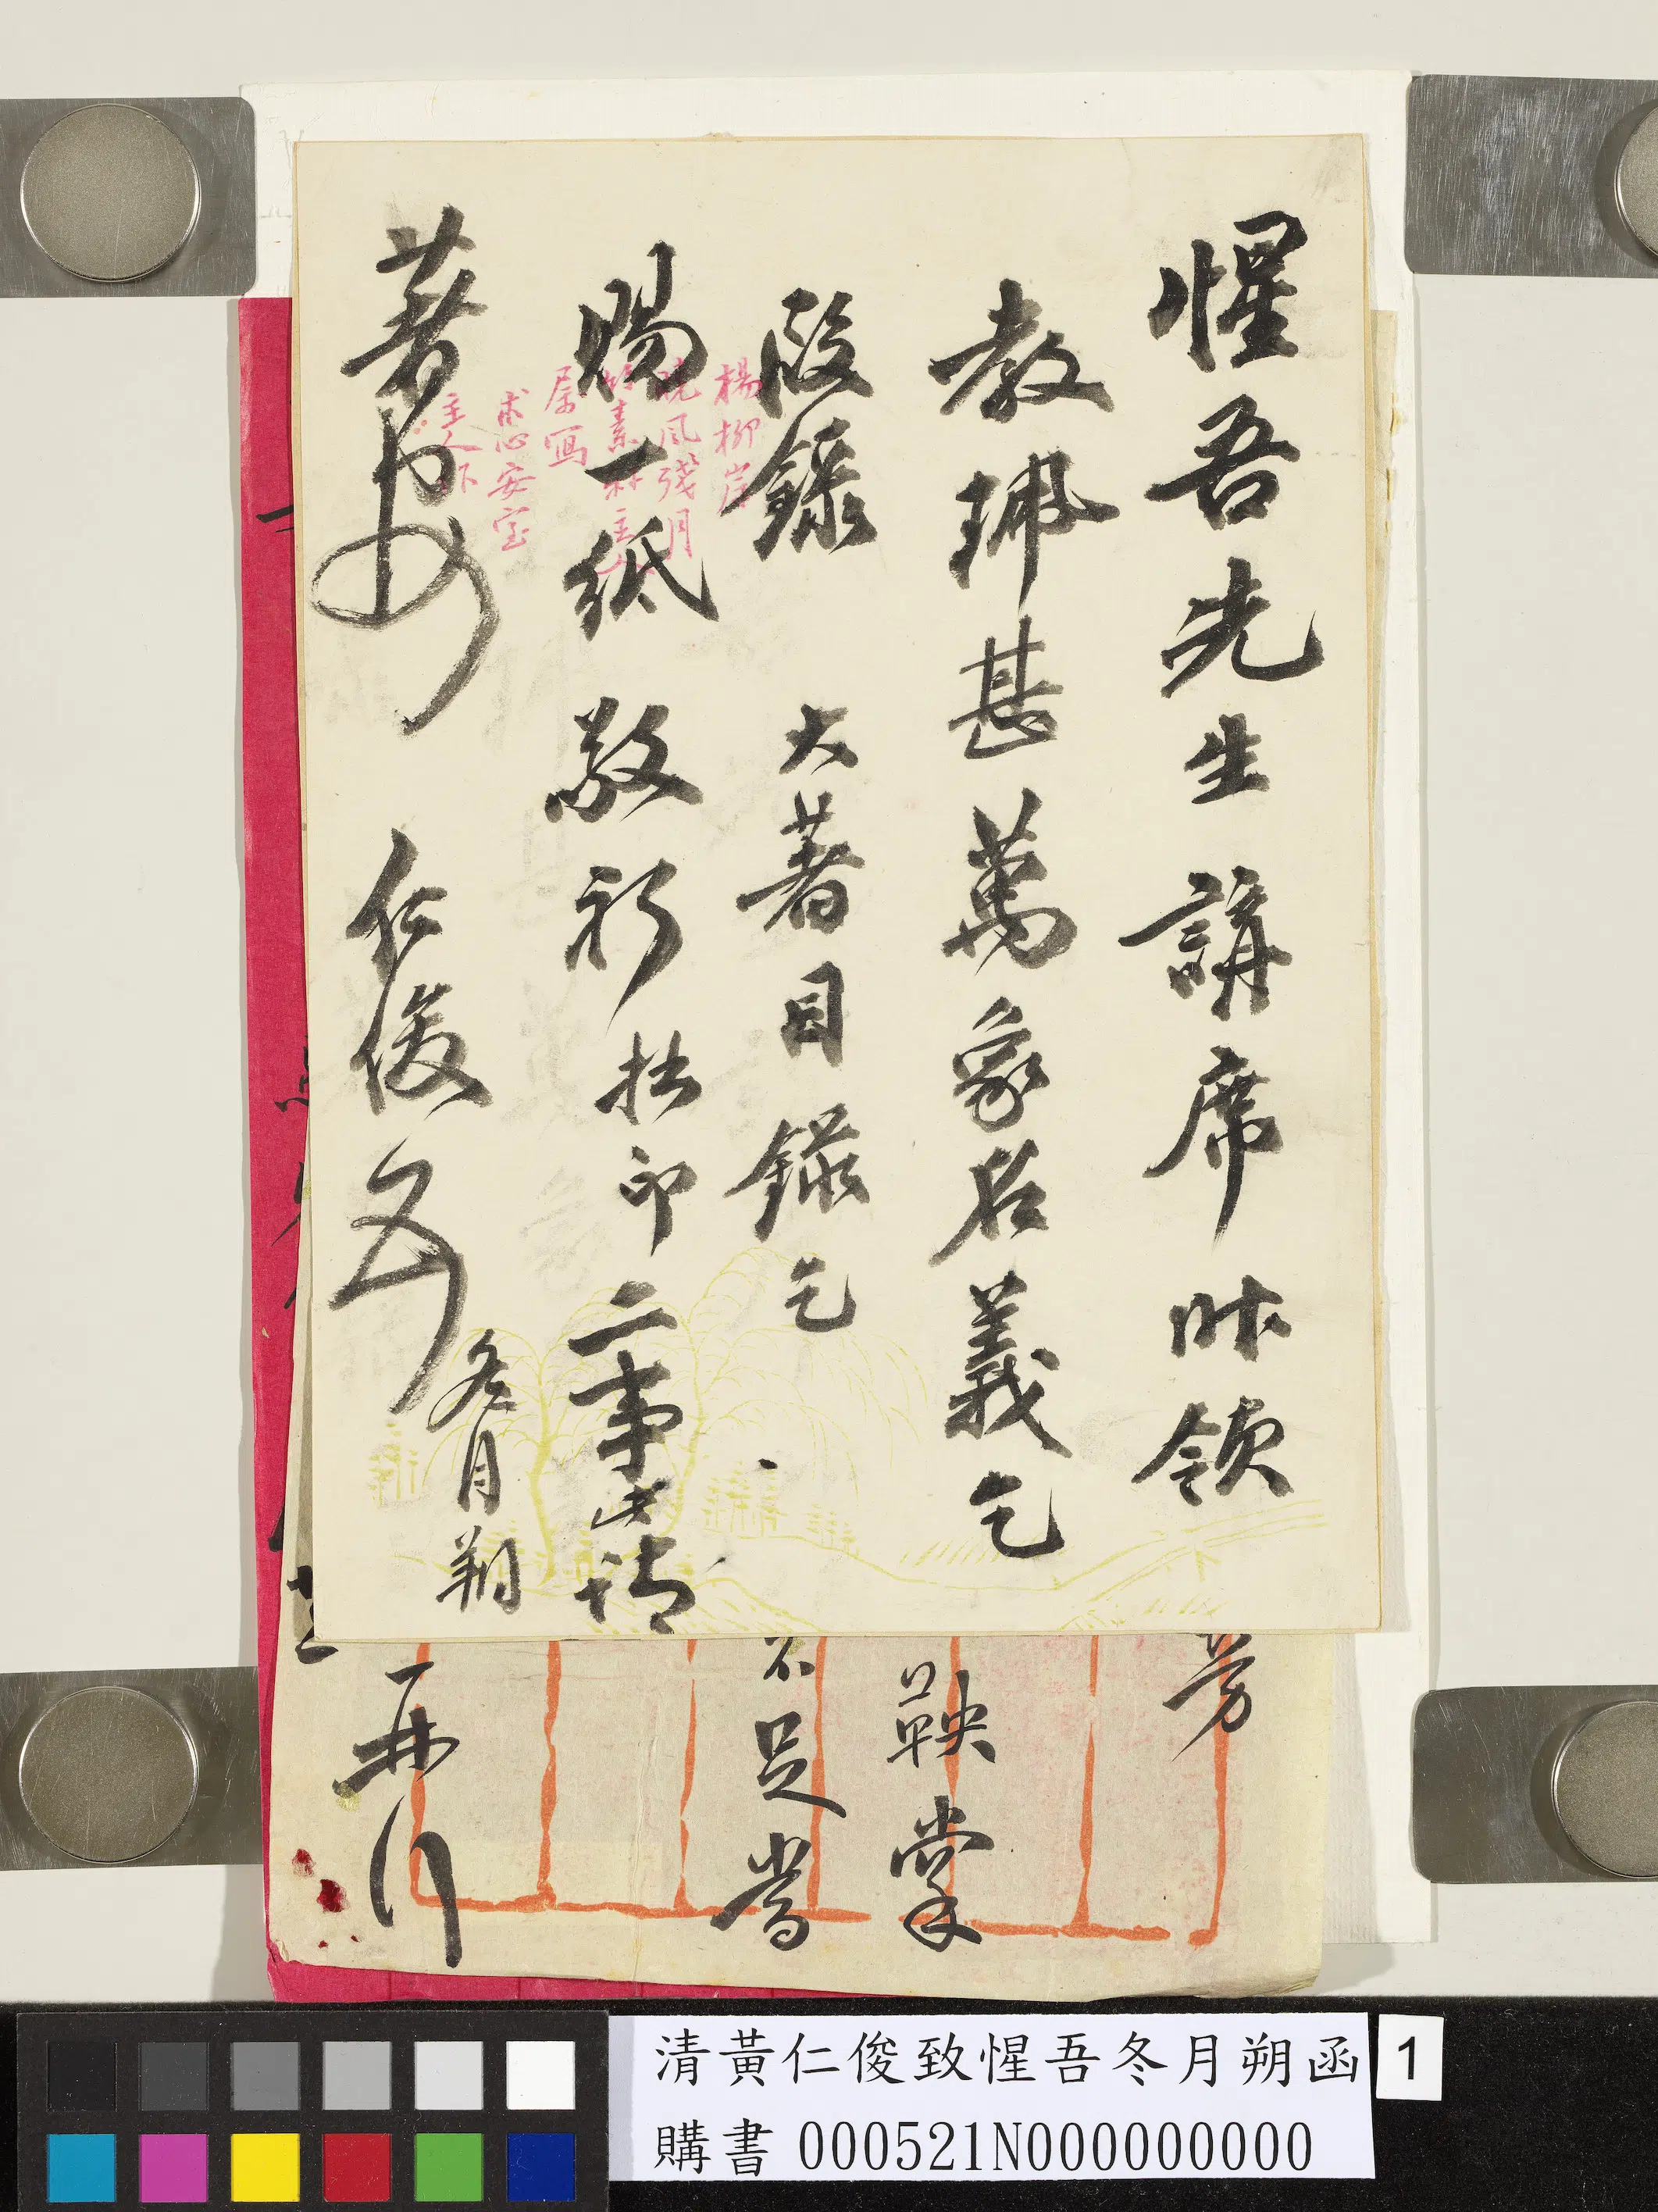 惺吾先生講席昨領
教珮甚萬象名義乞
段錄 大著目錄乞
賜一紙敬祈拙印二事此請
著安 仁俊
冬月朔
楊柳岸
曉風殘月
竹素
主人
屬寫
安室
主人
芳
鞅掌
不足當
再行
清黃仁俊致惺吾冬月朔函
1
購書 000521N000000000